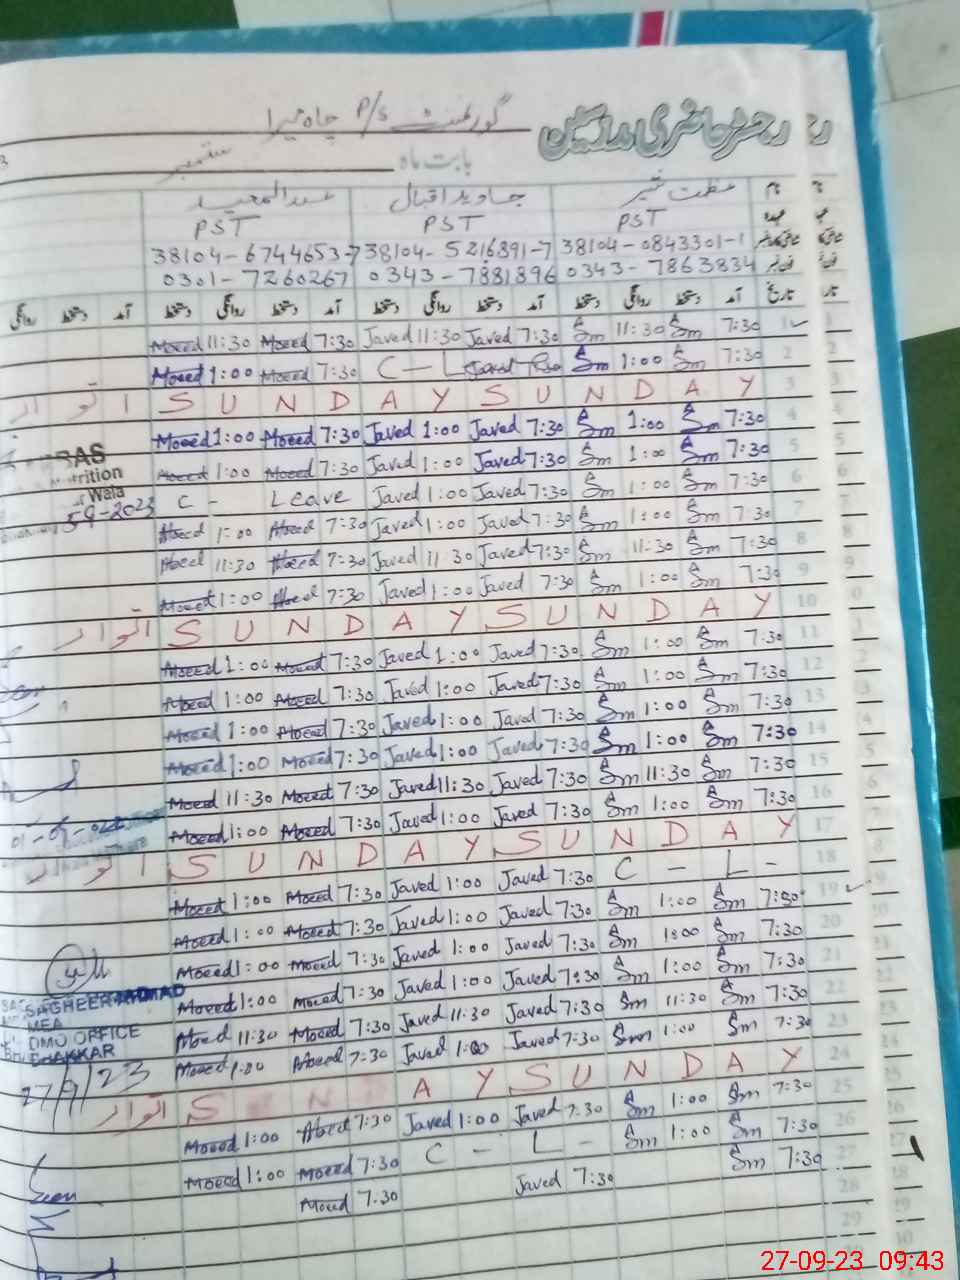 رجسٹر حاضری مدرسین
گورنمنٹ P/S چاہ میرا
بابت ماہ ستمبر
نام عظمت شیر جاوید اقبال عبدالمجید
عہدہ PST PST PST
38104-0843301-1 38104-5216891-7 38104-6744653-7
فون نمبر 0343-7863834 0343-7881896 0301-7260267
تاریخ آمد دستخط روانگی دستخط آمد دستخط روانگی دستخط آمد دستخط روانگی دستخط آمد دستخط روانگی
1 7:30 Sm 11:30 Sm 7:30 Javed 11:30 Javed 7:30 Moeed 11:30 Moeed
2 7:30 Sm 1:00 Sm C - L 7:30 Moeed 1:00 Moeed
3 S U N D A Y S U N D A Y اتوار
4 7:30 Sm 1:00 Sm 7:30 Javed 1:00 Javed 7:30 Moeed 1:00 Moeed
5 7:30 Sm 1:00 Sm 7:30 Javed 1:00 Javed 7:30 Moeed 1:00 Moeed
6 7:30 Sm 1:00 Sm 7:30 Javed 1:00 Javed C - Leave
7 7:30 Sm 1:00 Sm 7:30 Javed 1:00 Javed 7:30 Moeed 1:00 Moeed
8 7:30 Sm 11:30 Sm 7:30 Javed 11:30 Javed 7:30 Moeed 11:30 Moeed
9 7:30 Sm 1:00 Sm 7:30 Javed 1:00 Javed 7:30 Moeed 1:00 Moeed
10 S U N D A Y S U N D A Y اتوار
11 7:30 Sm 1:00 Sm 7:30 Javed 1:00 Javed 7:30 Moeed 1:00 Moeed
12 7:30 Sm 1:00 Sm 7:30 Javed 1:00 Javed 7:30 Moeed 1:00 Moeed
13 7:30 Sm 1:00 Sm 7:30 Javed 1:00 Javed 7:30 Moeed 1:00 Moeed
14 7:30 Sm 1:00 Sm 7:30 Javed 1:00 Javed 7:30 Moeed 1:00 Moeed
15 7:30 Sm 11:30 Sm 7:30 Javed 11:30 Javed 7:30 Moeed 11:30 Moeed
16 7:30 Sm 1:00 Sm 7:30 Javed 1:00 Javed 7:30 Moeed 1:00 Moeed
17 S U N D A Y S U N D A Y اتوار
18 C - L - 7:30 Javed 1:00 Javed 7:30 Moeed 1:00 Moeed
19 7:30 Sm 1:00 Sm 7:30 Javed 1:00 Javed 7:30 Moeed 1:00 Moeed
20 7:30 Sm 1:00 Sm 7:30 Javed 1:00 Javed 7:30 Moeed 1:00 Moeed
21 7:30 Sm 1:00 Sm 7:30 Javed 1:00 Javed 7:30 Moeed 1:00 Moeed
22 7:30 Sm 11:30 Sm 7:30 Javed 11:30 Javed 7:30 Moeed 11:30 Moeed
23 7:30 Sm 1:00 Sm 7:30 Javed 1:00 Javed 7:30 Moeed 1:00 Moeed
24 S U N D A Y S N A Y اتوار
25 7:30 Sm 1:00 Sm 7:30 Javed 1:00 Javed 7:30 Moeed 1:00 Moeed
26 7:30 Sm 1:00 Sm C - L - 7:30 Moeed 1:00 Moeed
27 7:30 Sm 7:30 Javed 7:30 Moeed
28
29
Wala
5-9-2023
SAGHEER AHMAD
MEA
DMO OFFICE
BHAKKAR
27/9/23
27-09-23 09:43